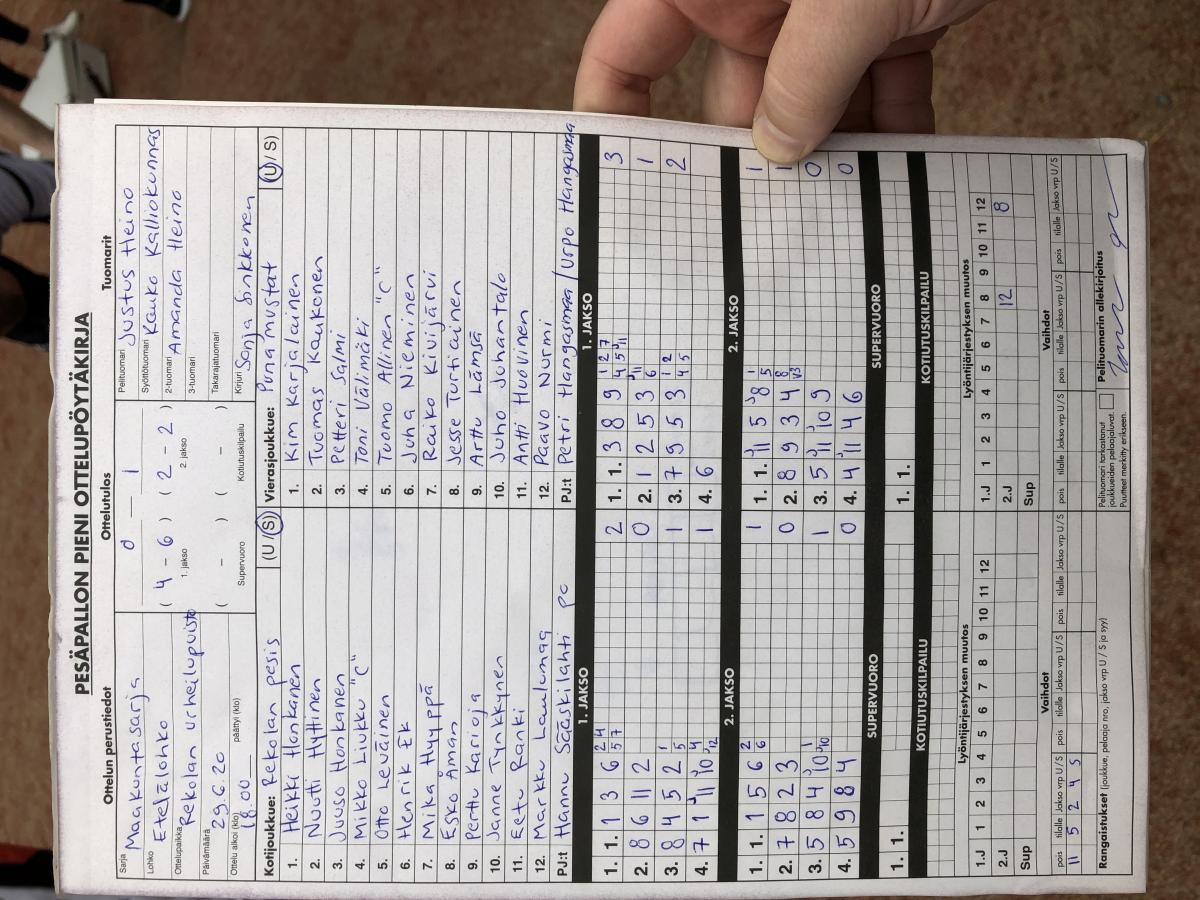 PESÄPALLON PIENI OTTELUPÖYTÄKIRJA
Ottelun perustiedot
Sarja Maakuntasarja
Lohko Etelälohko
Ottelupaikka Rekolan urheilupuisto
Päivämäärä 29.6.20
Ottelu alkoi (klo) 18.00 päättyi (klo)
Ottelutulos
0 — 1
( 4 – 6 ) ( 2 – 2 )
1. jakso 2. jakso
( – ) ( – )
Supervuoro Kotiutuskilpailu
Tuomarit
Pelituomari Justus Heino
Syöttötuomari Kauko Kalliokunnas
2-tuomari Amanda Heino
3-tuomari
Takarajatuomari
Kirjuri Sanja Sinkkonen
Kotijoukkue: Rekolan pesis (U / S)
1. Heikki Honkanen
2. Nuutti Hyttinen
3. Juuso Honkanen
4. Mikko Liukku "C"
5. Otto Leväinen
6. Henrik Ek
7. Mika Hyyppä
8. Esko Åman
9. Perttu Karioja
10. Janne Tynkkynen
11. Eetu Ranki
12. Markku Laulumaa
PJ:t Hannu Sääskilahti pc
Vierasjoukkue: Punamustat (U / S)
1. Kim Karjalainen
2. Tuomas Kaukonen
3. Petteri Salmi
4. Toni Välimäki
5. Tuomo Allinen "C"
6. Juha Nieminen
7. Rauko Kivijärvi
8. Jesse Turtiainen
9. Arttu Lämsä
10. Juho Juhantalo
11. Antti Huovinen
12. Paavo Nurmi
PJ:t Petri Hangasmaa / Urpo Hangasmaa
1. JAKSO
1. 1. 1 3 6 2 4 5 7 2
2. 8 6 11 2 0
3. 8 4 5 2 1 5 1
4. 7 1 11 10 4 12 1
2. JAKSO
1. 1. 1 5 6 2 6 1
2. 7 8 2 3 0
3. 5 8 4 10 1 10 1
4. 5 9 8 4 0
SUPERVUORO
1. 1.
KOTIUTUSKILPAILU
1. JAKSO
1. 1. 3 8 9 1 2 7 4 5 11 3
2. 1 2 5 3 11 6 1
3. 7 9 5 3 1 2 4 5 2
4. 6
2. JAKSO
1. 1. 11 5 8 1 5 1
2. 8 9 3 4 8 V3 1
3. 5 11 10 9 0
4. 4 11 4 6 0
SUPERVUORO
1. 1.
KOTIUTUSKILPAILU
Lyöntijärjestyksen muutos
1.J 1 2 3 4 5 6 7 8 9 10 11 12
2.J
Sup
Vaihdot
pois tilalle Jakso vrp U/S pois tilalle Jakso vrp U/S pois tilalle Jakso vrp U/S
11 5 2 4 S
Rangaistukset (joukkue, pelaaja nro, jakso vrp U / S ja syy)
Lyöntijärjestyksen muutos
1.J 1 2 3 4 5 6 7 8 9 10 11 12
2.J 12 8
Sup
Vaihdot
pois tilalle Jakso vrp U/S pois tilalle Jakso vrp U/S pois tilalle Jakso vrp U/S
Pelituomari tarkastanut
joukkueiden pelaajaluvat.
Puutteet merkitty erikseen.
Pelituomarin allekirjoitus